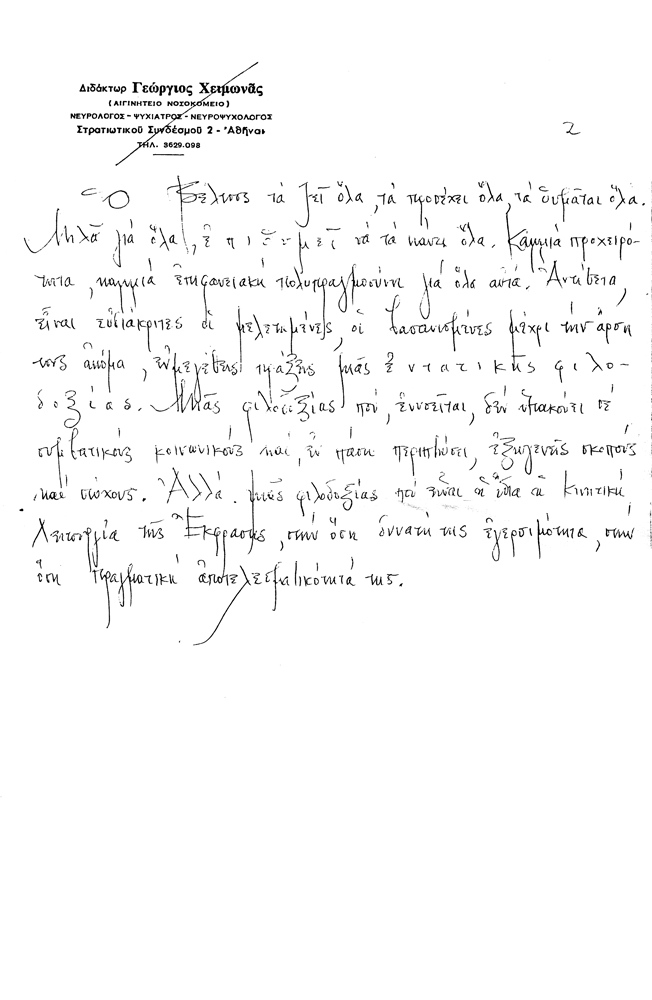 Διδάκτωρ Γεώργιος Χειμωνᾶς
(ΑΙΓΙΝΗΤΕΙΟ ΝΟΣΟΚΟΜΕΙΟ)
ΝΕΥΡΟΛΟΓΟΣ - ΨΥΧΙΑΤΡΟΣ - ΝΕΥΡΟΨΥΧΟΛΟΓΟΣ
Στρατιωτικοῦ Συνδέσμου 2 - Ἀθῆναι
ΤΗΛ. 3629.098
2
Ὁ Βέλτσος τά ζεῖ ὅλα, τά προσέχει ὅλα, τά θυμᾶται ὅλα.
Μιλᾶ γιά ὅλα, ἐπιθυμεῖ νά τά κάνει ὅλα. Καμμιά προχειρό-
τητα, καμμιά ἐπιφανειακή πολυπραγμοσύνη γιά ὅλα αὐτά. Ἀντίθετα,
εἶναι εὐδιάκριτες οἱ μελετημένες, οἱ βασανισμένες μέχρι τήν ἄρση
τους ἀκόμα, εὐμεγέθεις πράξεις μιᾶς ἐντατικῆς φιλο-
δοξίας. Μιᾶς φιλοδοξίας πού, ἐννοεῖται, δέν ὑπακούει σέ
συμβατικούς κοινωνικούς καί, ἐν πάσῃ περιπτώσει, ἐξωγενῆς σκοπούς
καί στόχους. Ἀλλά μιᾶς φιλοδοξίας πού εἶναι ἡ ἴδια ἡ κινητική
λειτουργία τῆς Ἐκφρασης, στήν ὅση δυνατή της ἐγερσιμότητα, στήν
ὅση πραγματική ἀποτελεσματικότητά της.